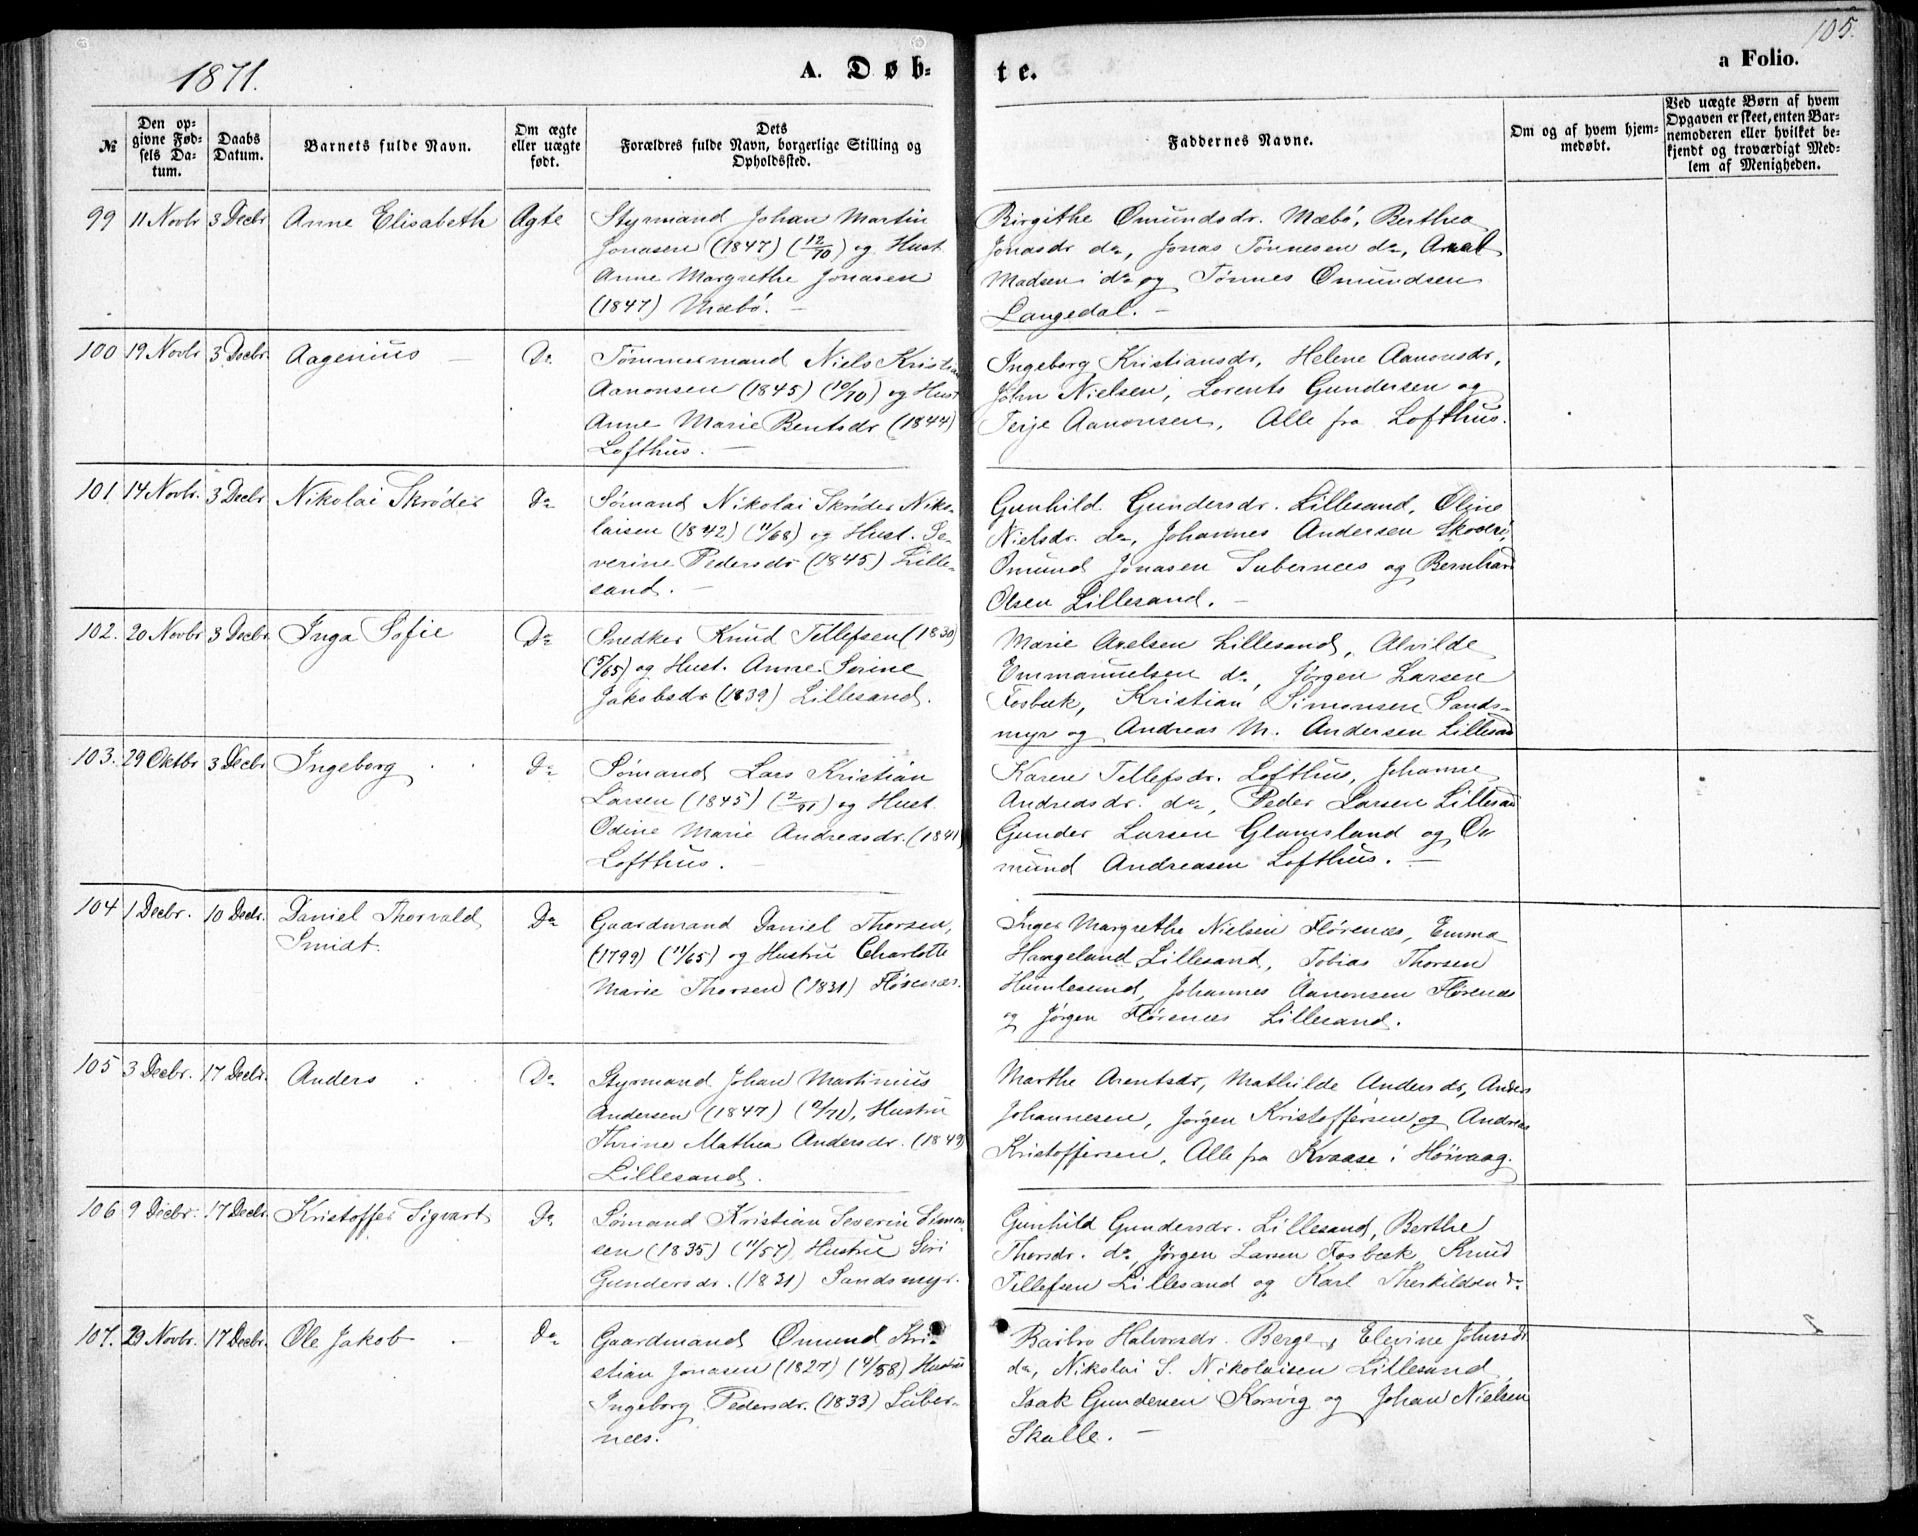 105.
1871.
A. Døb-
te.
a Folio.
№
Den op-
givne Fød-
sels Da-
tum.
Daabs
Datum.
Barnets fulde Navn.
Om ægte
eller uægte
født.
Dets
Forældres fulde Navn, borgerlige Stilling og
Opholdssted.
Faddernes Navne.
Om og af hvem hjem-
medøbt.
Ved uægte Børn af hvem
Opgaven er skeet, enten Bar-
nemoderen eller hvilket be-
kjendt og troværdigt Med-
lem af Menigheden.
99 11 Novbr 3 Decbr Anne Elisabeth Ægte
Styrmand Johan Martin
Jonasen (1847) (12/70) og Hust.
Anne Margrethe Jonasen
(1847) Mæbø. —
Birgithe Omundsdr. Mæbø, Berthea
Jonasdr do, Jonas Tønnesen do,
Madsen do og Tønnes Omundsen
Langedal. —
100 19 Novbr 3 Decbr. Aagenius — Do
Tømmermand Niels Kristian
Aanonsen (1845) (10/70) og Hust
Anne Marie Bentsdr (1844)
Lofthus. —
Ingeborg Kristiansdr, Helene Aanonsdr,
John Nielsen, Lorents Gundersen og
Terje Aanonsen, Alle fra Lofthus.
101. 14 Novbr. 3 Decbr Nikolai Skrøder Do
Sømand Nikolai Skrøder Niko-
laisen (1842) (11/68) og Hust. Se-
verine Pedersdr (1845) Lille-
sand. —
Gunhild Gundersdr. Lillesand, Oline
Nielsdr. do, Johannes Andersen
Omund Jonasen Subernæs og Bernhard
Olsen Lillesand. —
102. 20 Novbr 3 Decbr. Inga Sofie Do
Snedker Knud Tellefsen (1830)
(5/65) og Hust. Anne Serine
Jakobsdr (1839) Lillesand.
Marie Axelsen Lillesand, Alvilde
Emmanuelsen do, Jørgen Larsen
Fosbæk, Kristian Simonsen Sands-
myr og Andreas M. Andersen Lillesand
103. 29 Oktbr 3 Decbr Ingeborg Do
Sømand Lars Kristian
Larsen (1845) (2/71) og Hust.
Odine Marie Andreasdr. (1841)
Lofthus. —
Karen Tellefsdr. Lofthus, Johanne
Andreasdr. do, Peder Larsen Lillesand
Gunder Larsen Glamsland og O-
mund Andreasen Lofthus. —
104 1 Decbr. 10 Decbr. Daniel Thorvald Do
Smidt.
Gaardmand Daniel Thorsen,
(1799) (11/65) og Hustru Charlotte
Marie Thorsen (1831) Flørenæs.
Inger Margrethe Nielsen Flørenæs, Emma
Haugeland Lillesand, Tobias Thorsen
Humlesund, Johannes Aanonsen Flørenæs
og Jørgen Flørenæs Lillesand.
105 3 Decbr. 17 Decbr. Anders Do
Styrmand Johan Martinius
Andersen (1847) Hustru
Thrine Mathea Andersdr. (1849)
Lillesand.
Marthe Arentsdr, Mathilde Andersdr, Anders
Johannesen, Jørgen Kristoffersen og Andreas
Kristoffersen, Alle fra Kraase i Høivaag.
106 9 Decbr. 17 Decbr. Kristoffer Sigvart Do
Sømand Kristian Severin Simon-
sen (1835) (11/57) Hustru Siri
Gundersdr. (1831) Sandsmyr.
Gunhild Gundersdr. Lillesand, Berthe
Thorsdr. do, Jørgen Larsen Fosbæk Knud
Tellefsen Lillesand og Karl Therkildsen do
107. 29 Novbr. 17 Decbr. Ole Jakob Do
Gaardmand Omund Kri-
stian Jonasen (1827) (4/58) Hustru
Ingeborg Pedersdr. (1833) Suber-
næs.
Barbro Halvorsdr. Berge, Elevine
do, Nikolai S. Nikolaisen Lillesand
Isak Gundersen Korsvig og Johan Nielsen
Skalle. —